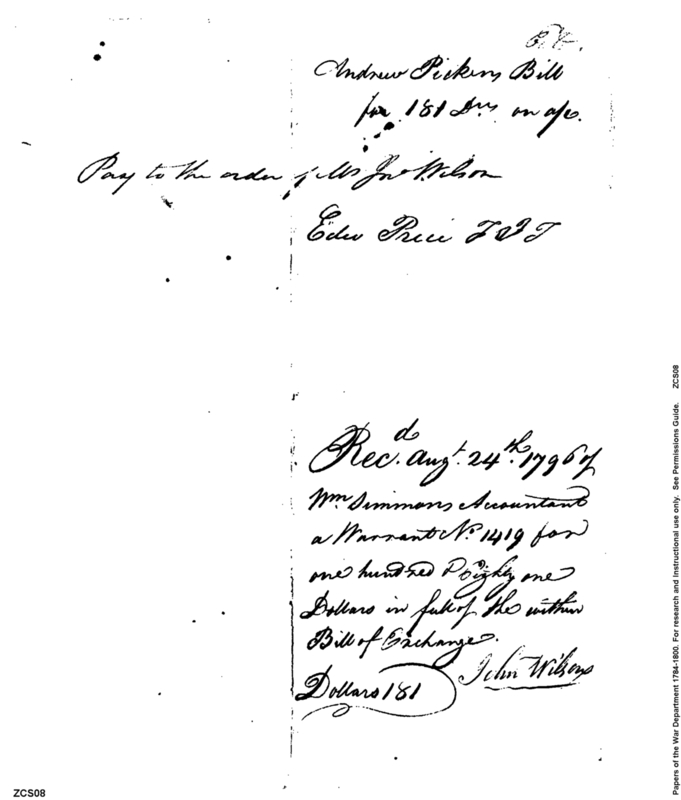 Andrew Pickens Bill
for 181 Drs on a/c.
Pay to the order of Mr Jno Wilson
Edwd Price F U T
Recd. Augt. 24th. 1796 of
Wm Simmons Accountant
a Warrant No. 1419 for
one hundred & Eighty one
Dollars in full of the within
Bill of Exchange.
John Wilson
Dollars 181
ZCS08
Papers of the War Department 1784-1800. For research and instructional use only. See Permissions Guide. ZCS08